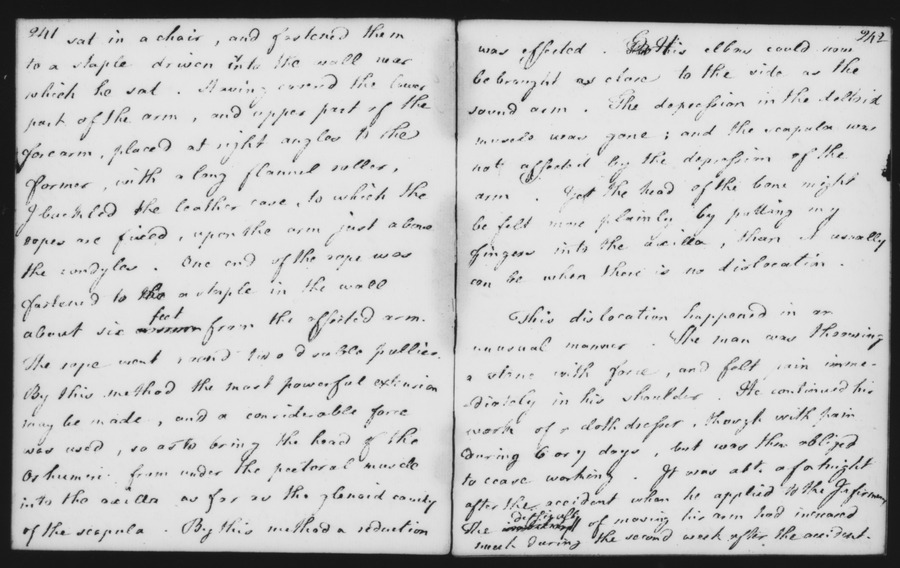 241 sat in a chair, and fastened them
to a staple driven into the wall near
which he sat. Having covered the lower
part of the arm, and upper part of the
forearm, placed at right angles to the
former, with a long flannel roller,
I buckled the leather case, to which the
ropes are fixed, upon the arm just above
the condyles. One end of the rope was
fastened to the a staple in the wall
about six feet from the affected arm.
The rope went round two double pullies.
By this method the most powerful extension
may be made, and a considerable force
was used, so as to bring the head of the
Os humeri from under the pectoral muscle
into the axilla as far as the glenoid cavity
of the scapula. By this method a reduction
242
was effected. His elbow could now
be brought as close to the side as the
sound arm. The depression in the deltoid
muscle was gone; and the scapula was
not affected by the depression of the
arm. Yet the head of the bone might
be felt more plainly by putting my
fingers into the axilla, than it usually
can be when there is no dislocation.
This dislocation happened in an
unusual manner. The man was throwing
a stone with force, and felt pain imme-
diately in his shoulder. He continued his
work of a cloth dresser, though with pain
during 6 or 7 days, but was then obliged
to cease working. It was abt. a fortnight
after the accident when he applied to the Infirmary
The difficulty of moving his arm had increased
much during the second week after the accident.